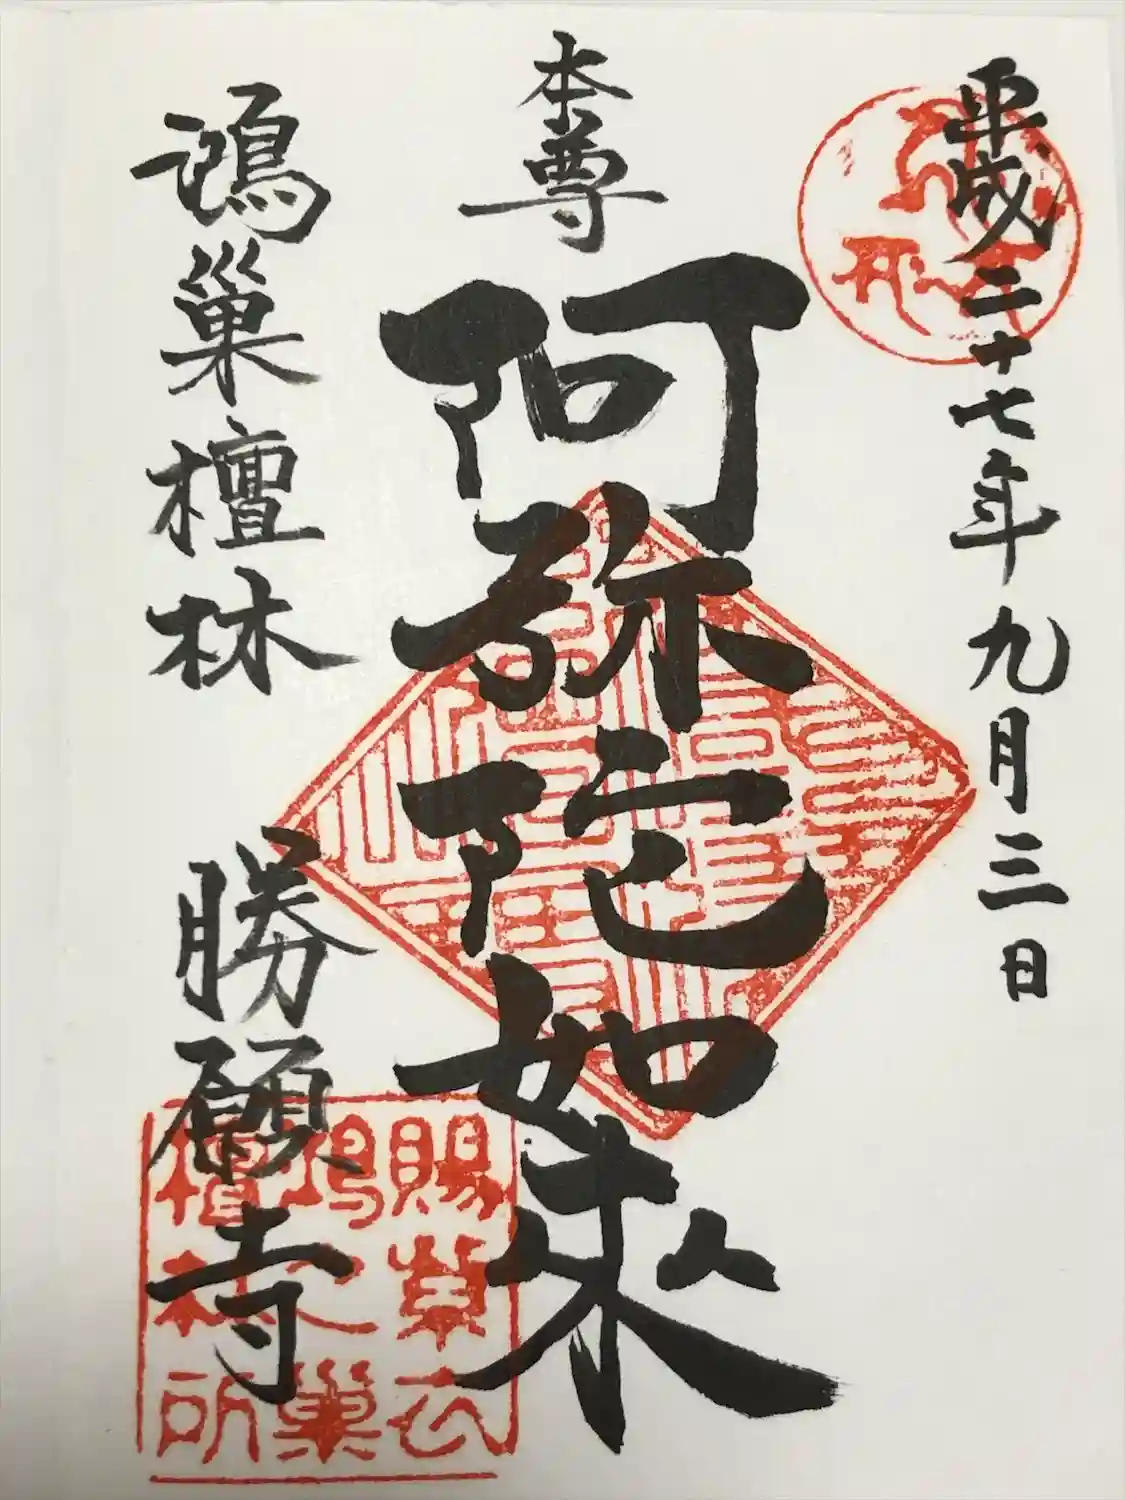 平成二十七年九月三日
本尊
阿弥陀如来
鴻巣檀林 勝願寺
賜紫衣
鴻之巣
檀林所